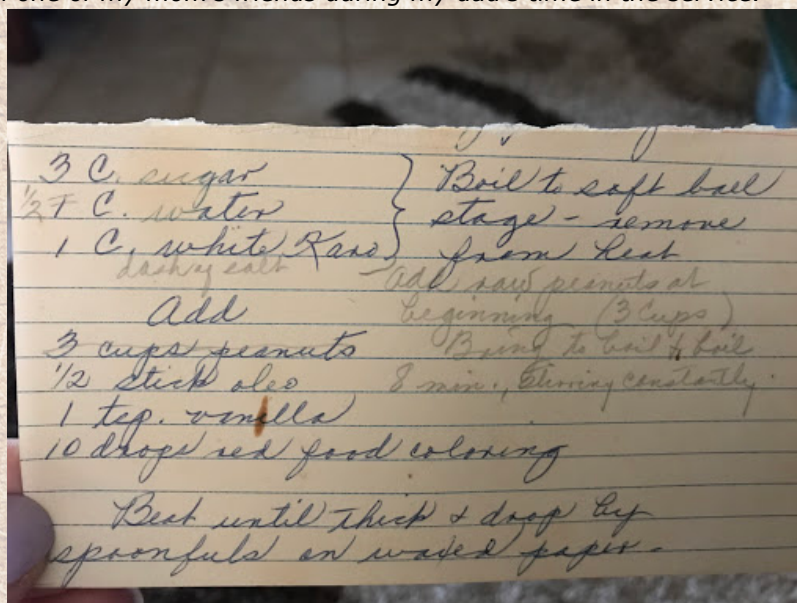 one of my mom's friends during my dad's time in the service.
3 C. sugar
1/2 C. water
1 C. white Karo
dash of salt
Boil to soft ball
stage - remove
from heat
Add raw peanuts at
beginning (3 Cups)
Bring to boil & boil
8 min., stirring constantly.
Add
3 cups peanuts
1/2 stick oleo
1 tsp. vanilla
10 drops red food coloring
Beat until thick & drop by
spoonfuls on waxed paper.